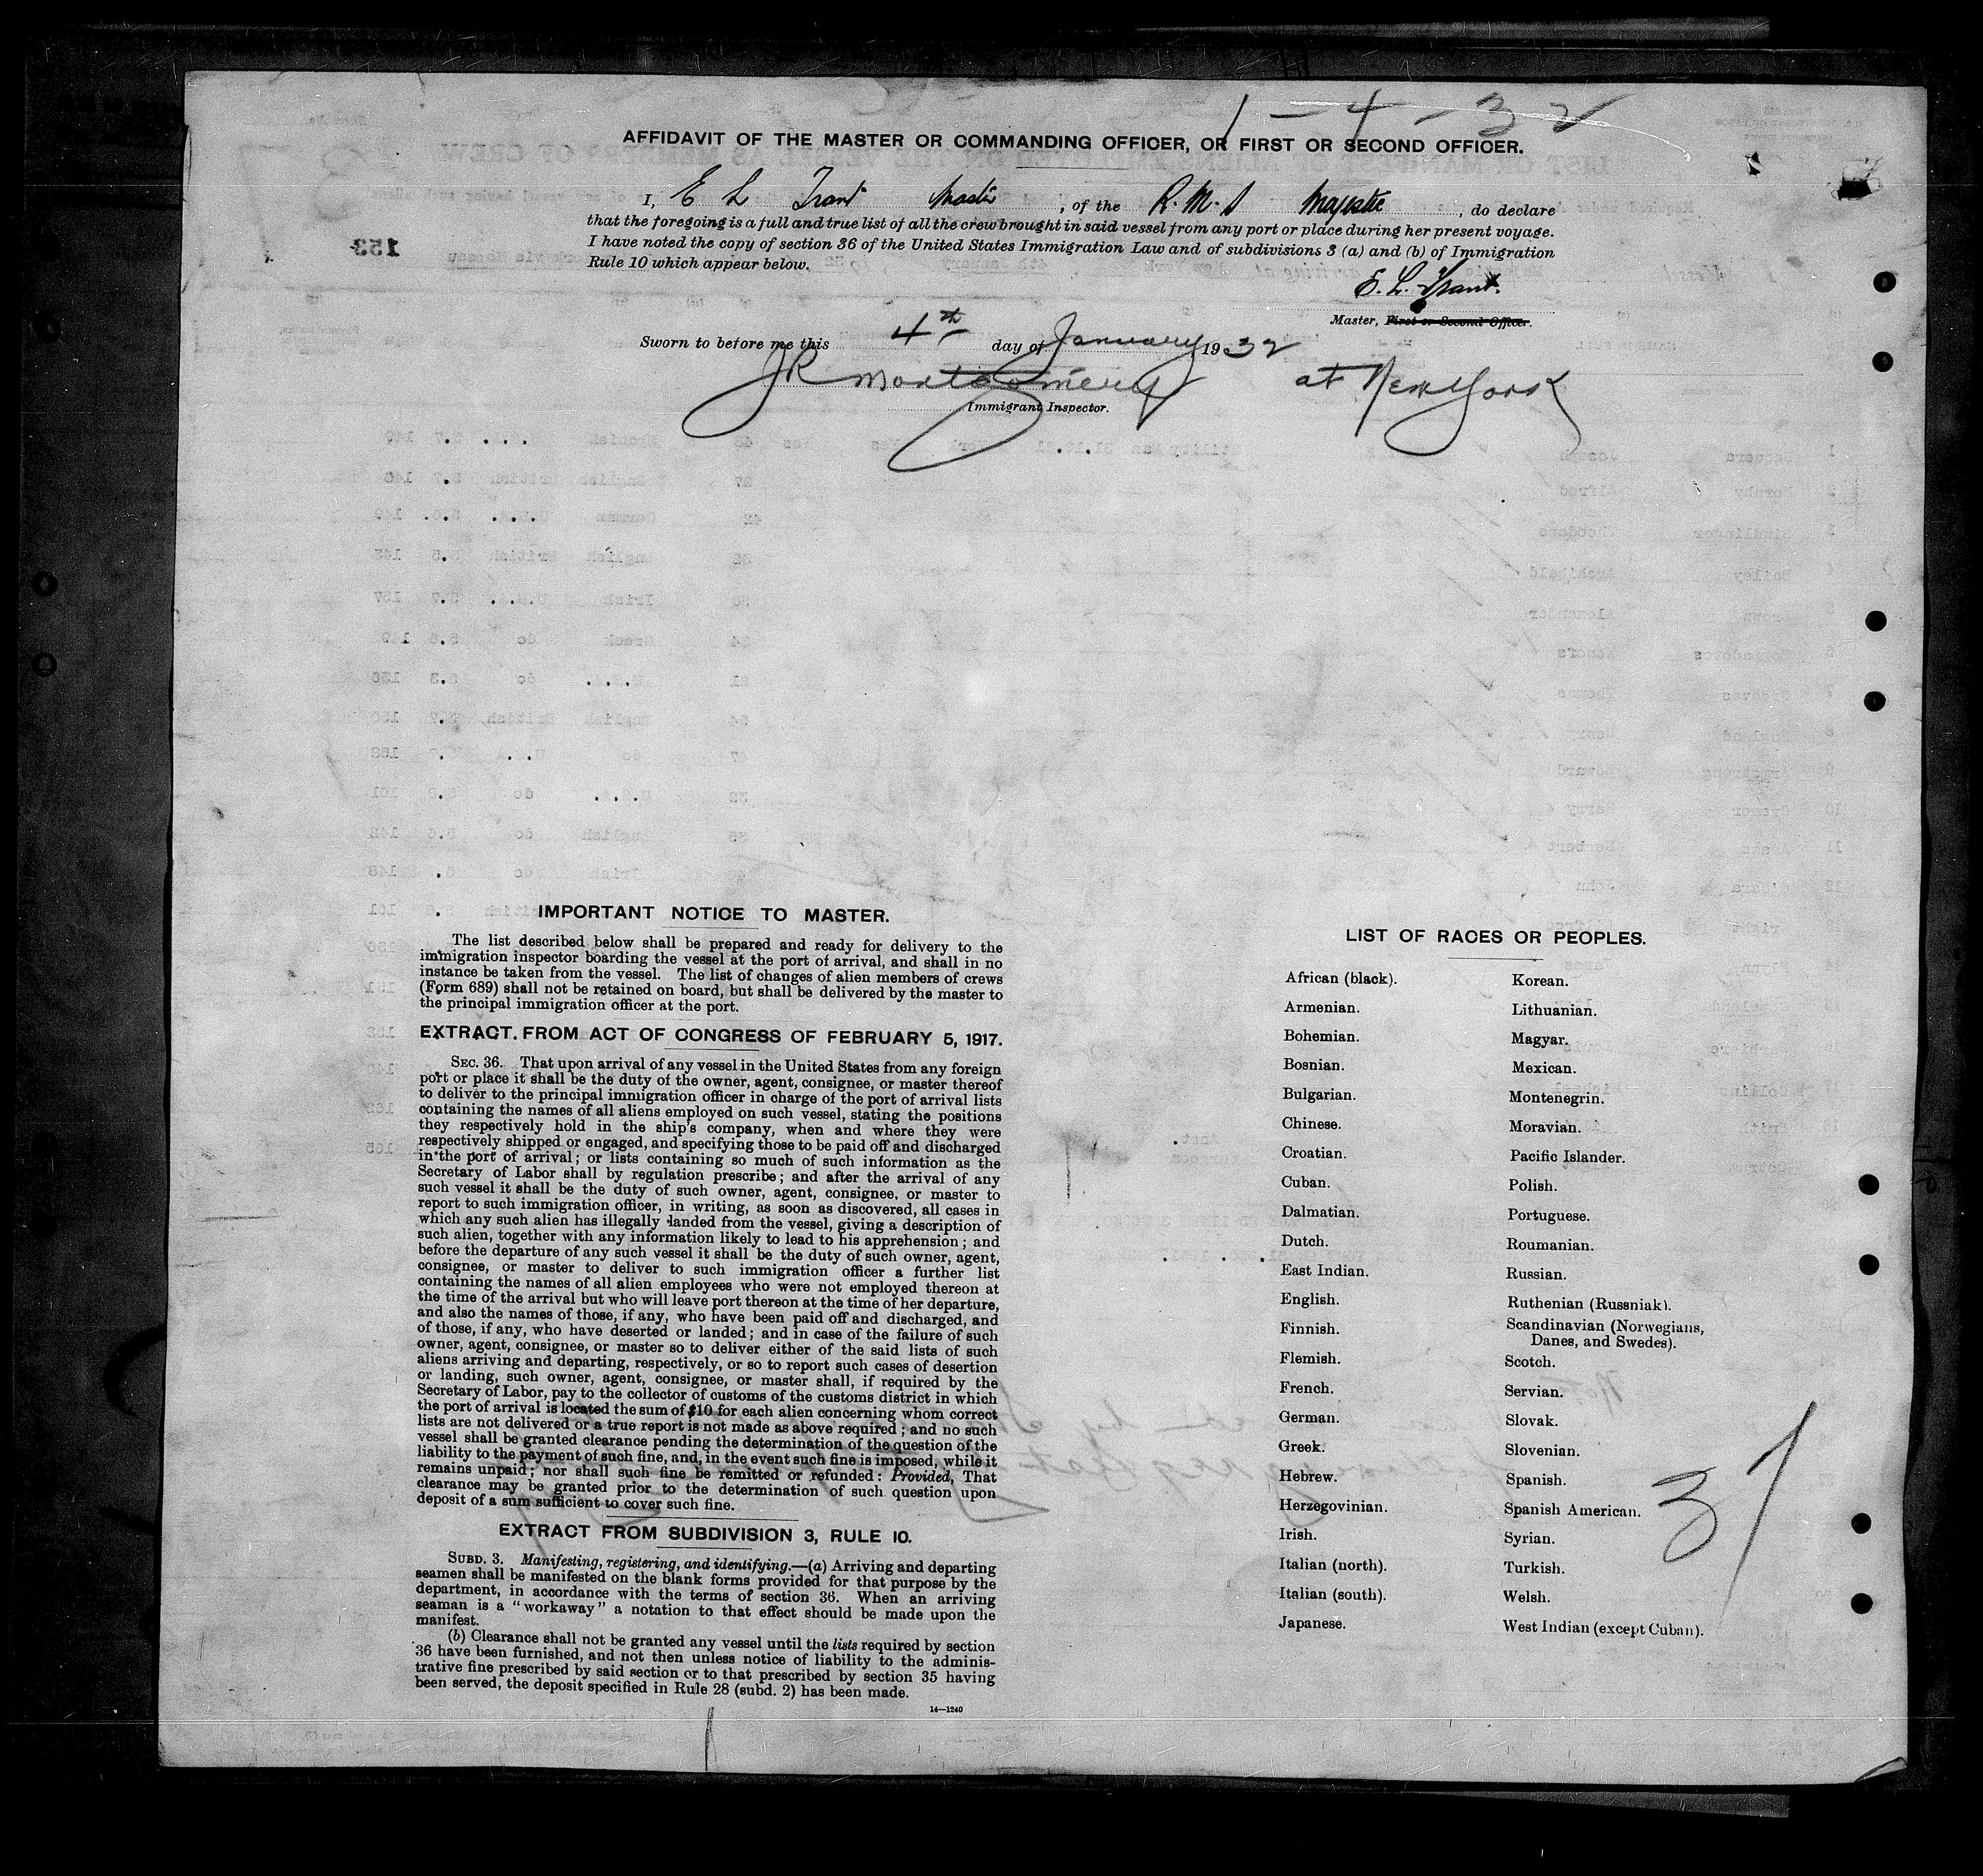 1 - 4 - 32
AFFIDAVIT OF THE MASTER OR COMMANDING OFFICER, OR FIRST OR SECOND OFFICER.
I, E L Trant Master, of the R.M.S Majestic, do declare
that the foregoing is a full and true list of all the crew brought in said vessel from any port or place during her present voyage.
I have noted the copy of section 36 of the United States Immigration Law and of subdivisions 3 (a) and (b) of Immigration
Rule 10 which appear below.
E. L. Trant.
Master, First or Second Officer.
Sworn to before me this 4th day of January, 1932
JR Montgomery at New York
Immigrant Inspector.
IMPORTANT NOTICE TO MASTER.
The list described below shall be prepared and ready for delivery to the
immigration inspector boarding the vessel at the port of arrival, and shall in no
instance be taken from the vessel. The list of changes of alien members of crews
(Form 689) shall not be retained on board, but shall be delivered by the master to
the principal immigration officer at the port.
EXTRACT FROM ACT OF CONGRESS OF FEBRUARY 5, 1917.
SEC. 36. That upon arrival of any vessel in the United States from any foreign
port or place it shall be the duty of the owner, agent, consignee, or master thereof
to deliver to the principal immigration officer in charge of the port of arrival lists
containing the names of all aliens employed on such vessel, stating the positions
they respectively hold in the ship's company, when and where they were
respectively shipped or engaged, and specifying those to be paid off and discharged
in the port of arrival; or lists containing so much of such information as the
Secretary of Labor shall by regulation prescribe; and after the arrival of any
such vessel it shall be the duty of such owner, agent, consignee, or master to
report to such immigration officer, in writing, as soon as discovered, all cases in
which any such alien has illegally landed from the vessel, giving a description of
such alien, together with any information likely to lead to his apprehension; and
before the departure of any such vessel it shall be the duty of such owner, agent,
consignee, or master to deliver to such immigration officer a further list
containing the names of all alien employees who were not employed thereon at
the time of the arrival but who will leave port thereon at the time of her departure,
and also the names of those, if any, who have been paid off and discharged, and
of those, if any, who have deserted or landed; and in case of the failure of such
owner, agent, consignee, or master so to deliver either of the said lists of such
aliens arriving and departing, respectively, or so to report such cases of desertion
or landing, such owner, agent, consignee, or master shall, if required by the
Secretary of Labor, pay to the collector of customs of the customs district in which
the port of arrival is located the sum of $10 for each alien concerning whom correct
lists are not delivered or a true report is not made as above required; and no such
vessel shall be granted clearance pending the determination of the question of the
liability to the payment of such fine, and, in the event such fine is imposed, while it
remains unpaid; nor shall such fine be remitted or refunded: Provided, That
clearance may be granted prior to the determination of such question upon
deposit of a sum sufficient to cover such fine.
EXTRACT FROM SUBDIVISION 3, RULE 10.
SUBD. 3. Manifesting, registering, and identifying.—(a) Arriving and departing
seamen shall be manifested on the blank forms provided for that purpose by the
department, in accordance with the terms of section 36. When an arriving
seaman is a "workaway" a notation to that effect should be made upon the
manifest.
(b) Clearance shall not be granted any vessel until the lists required by section
36 have been furnished, and not then unless notice of liability to the adminis-
trative fine prescribed by said section or to that prescribed by section 35 having
been served, the deposit specified in Rule 28 (subd. 2) has been made.
14—1240
LIST OF RACES OR PEOPLES.
African (black).
Armenian.
Bohemian.
Bosnian.
Bulgarian.
Chinese.
Croatian.
Cuban.
Dalmatian.
Dutch.
East Indian.
English.
Finnish.
Flemish.
French.
German.
Greek.
Hebrew.
Herzegovinian.
Irish.
Italian (north).
Italian (south).
Japanese.
Korean.
Lithuanian.
Magyar.
Mexican.
Montenegrin.
Moravian.
Pacific Islander.
Polish.
Portuguese.
Roumanian.
Russian.
Ruthenian (Russniak).
Scandinavian (Norwegians,
Danes, and Swedes).
Scotch.
Servian.
Slovak.
Slovenian.
Spanish.
Spanish American.
Syrian.
Turkish.
Welsh.
West Indian (except Cuban).
37